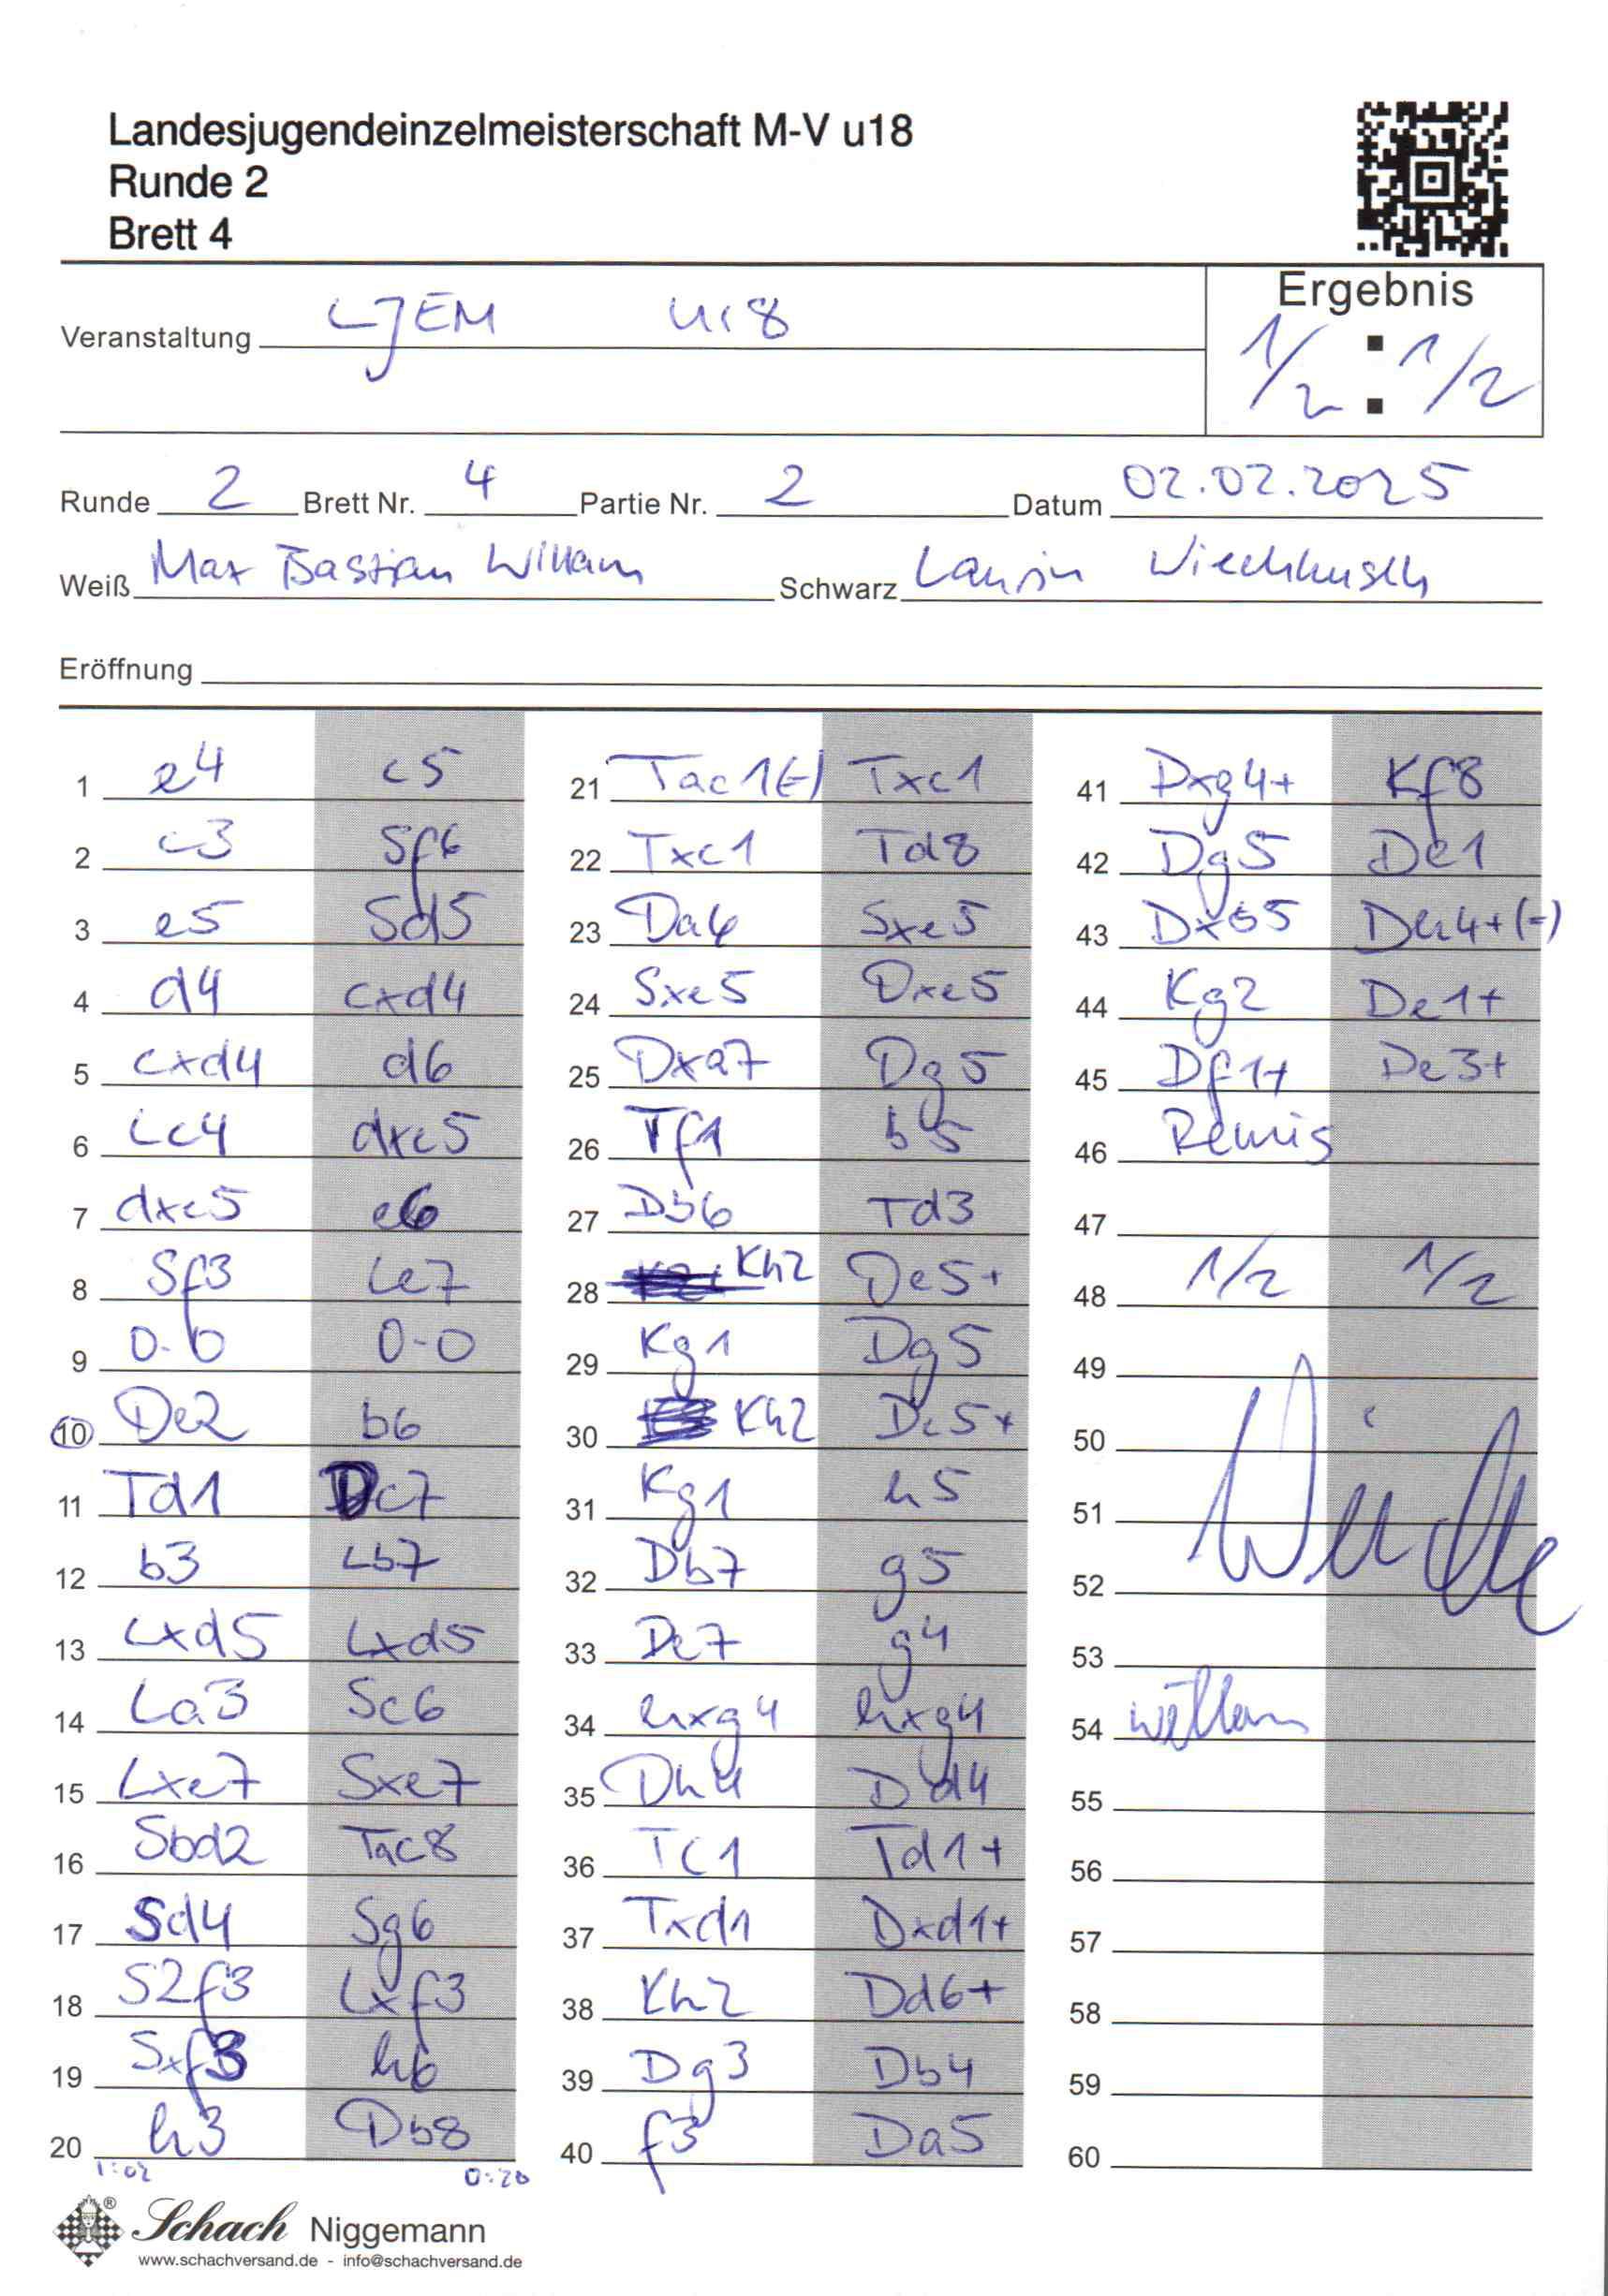 Landesjugendeinzelmeisterschaft M-V u18
Runde 2
Brett 4
Ergebnis
Veranstaltung LJEM U18
1/2 : 1/2
Runde 2 Brett Nr. 4 Partie Nr. 2 Datum 02.02.2025
Weiß Max Bastian Willam Schwarz Laurin Wiechhusch
Eröffnung
1 e4 c5
2 c3 Sf6
3 e5 Sd5
4 d4 cxd4
5 cxd4 d6
6 Lc4 dxe5
7 dxe5 e6
8 Sf3 Le7
9 0-0 0-0
10 De2 b6
11 Td1 Dc7
12 b3 Lb7
13 Lxd5 Lxd5
14 La3 Sc6
15 Lxe7 Sxe7
16 Sbd2 Tac8
17 Sd4 Sg6
18 S2f3 Lxf3
19 Sxf3 h6
20 h3 Db8
1:02 0:20
21 Tac1(=) Txc1
22 Txc1 Td8
23 Da6 Sxe5
24 Sxe5 Dxe5
25 Dxa7 Dg5
26 Tf1 b5
27 Db6 Td3
28 Kh2 De5+
29 Kg1 Dg5
30 Kh2 De5+
31 Kg1 h5
32 Db7 g5
33 De7 g4
34 hxg4 hxg4
35 Dh4 Dd4
36 Tc1 Td1+
37 Txd1 Dxd1+
38 Kh2 Dd6+
39 Dg3 Db4
40 f3 Da5
41 Dxg4+ Kf8
42 Dg5 De1
43 Dxb5 Dh4+(=)
44 Kg2 De1+
45 Df1+ De3+
46 Remis
47
48 1/2 1/2
49
50
51
52
53
54 Willam
55
56
57
58
59
60
Schach Niggemann
www.schachversand.de - info@schachversand.de